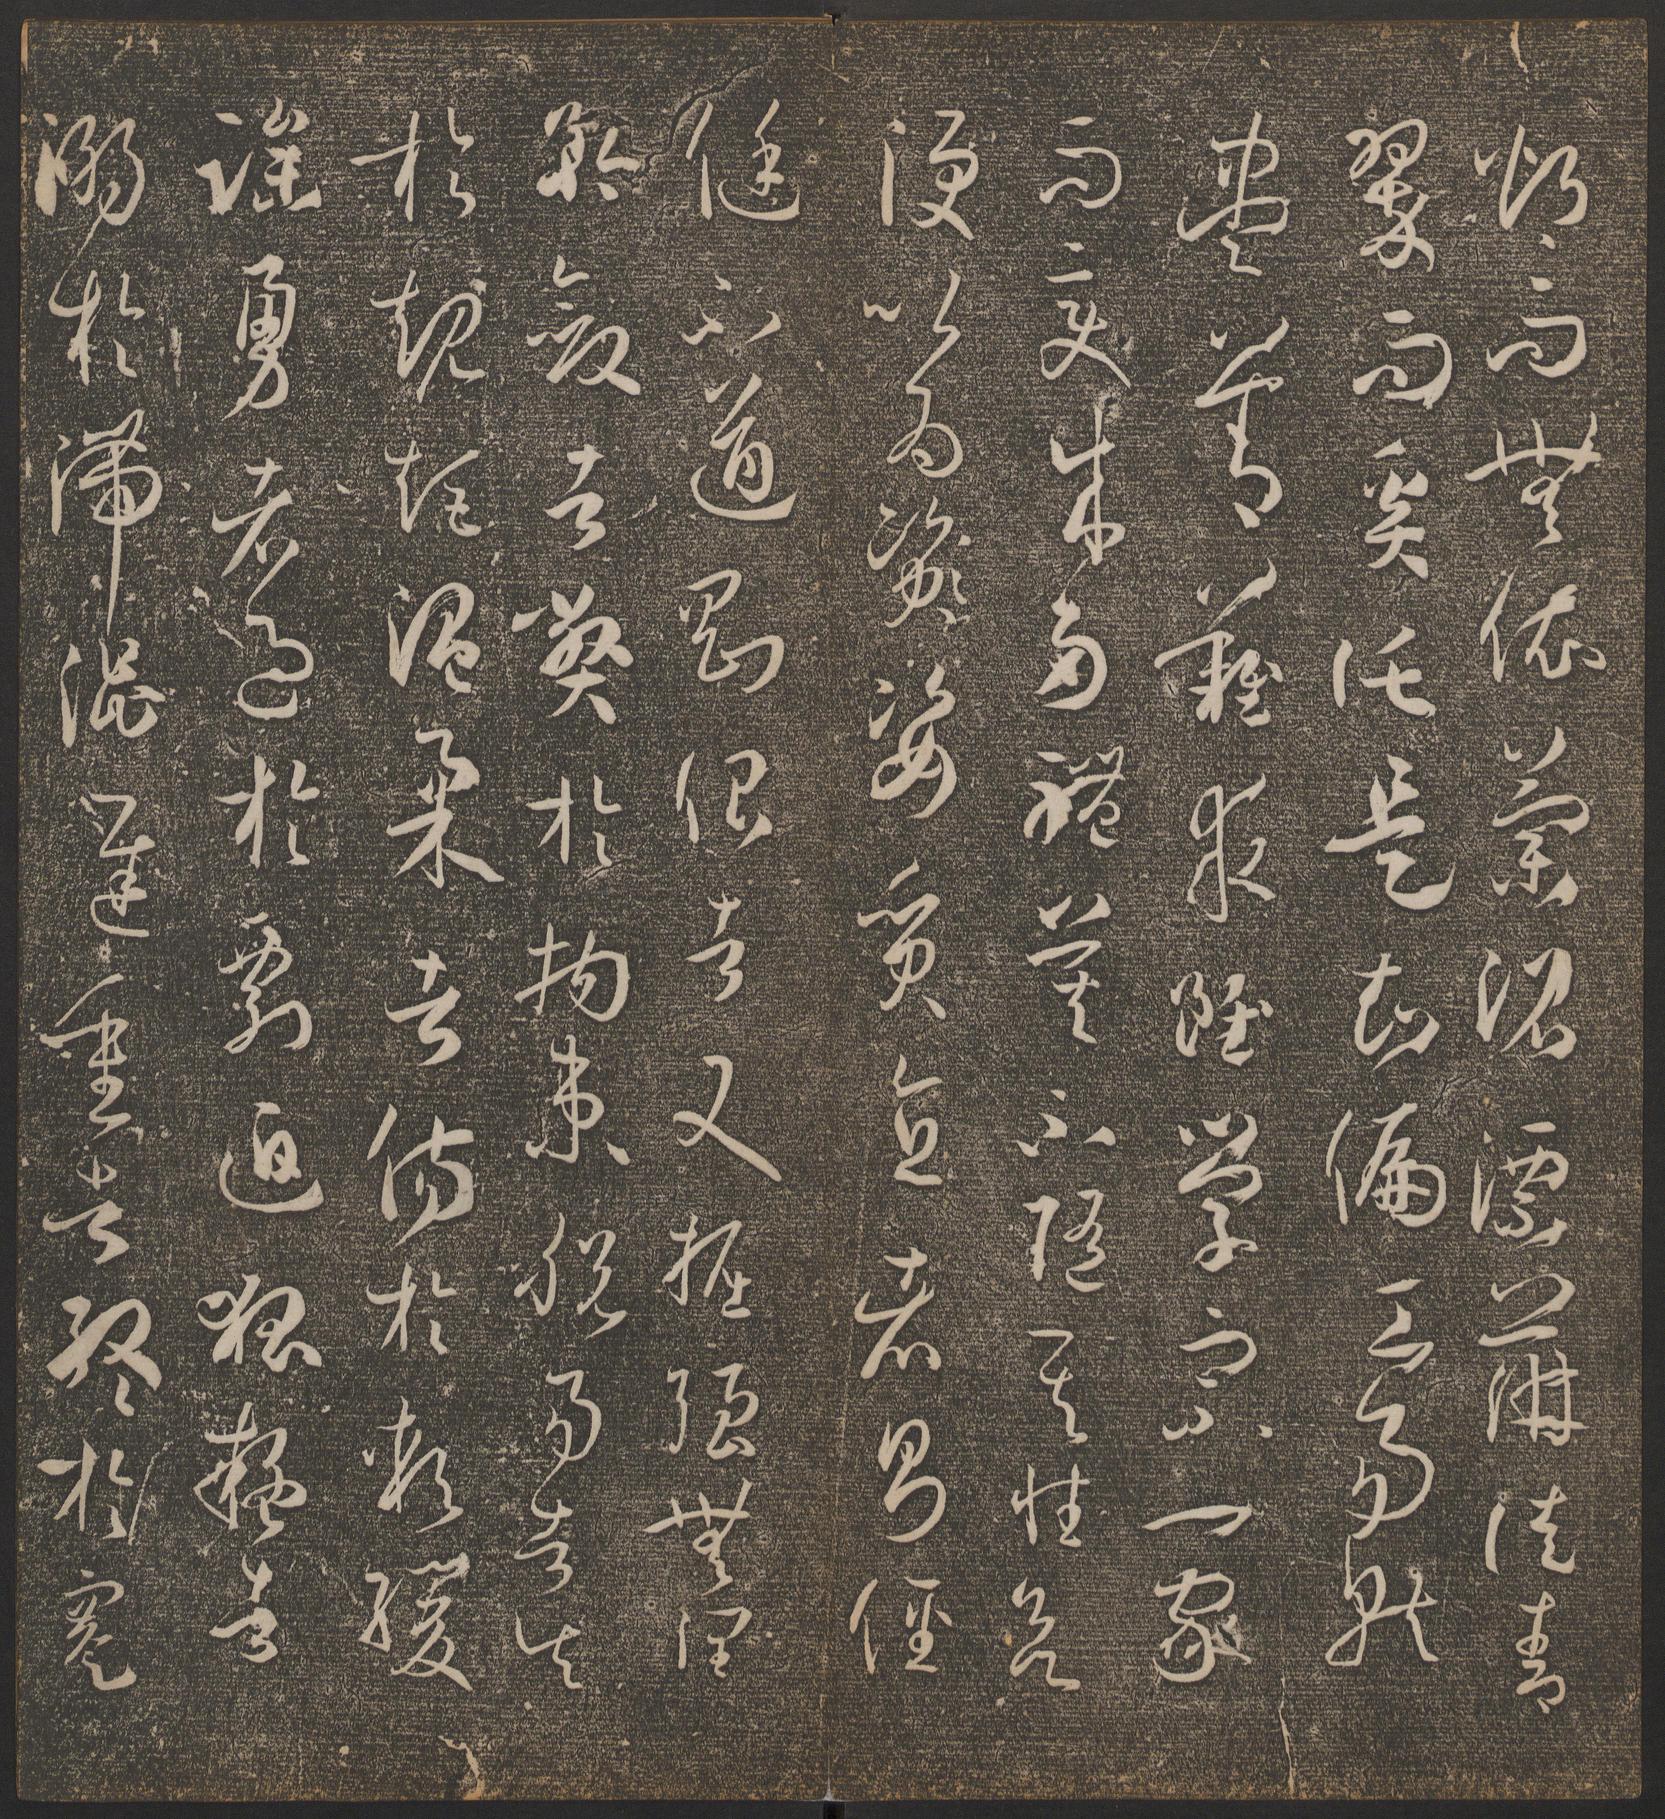 灼而無依蘭沼漂蓱徒青
翠而奚託是知偏工易就
盡善難求雖學宗一家
而變成多體莫不隨其性欲
便以為資姿質直者則俓
侹不遒剛佷者又掘強無潤
矜斂者弊於拘束脫易者失
於規矩溫柔者傷於軟緩
躁勇者過於剽迫狐疑者
溺於滯澀遲重者終於蹇